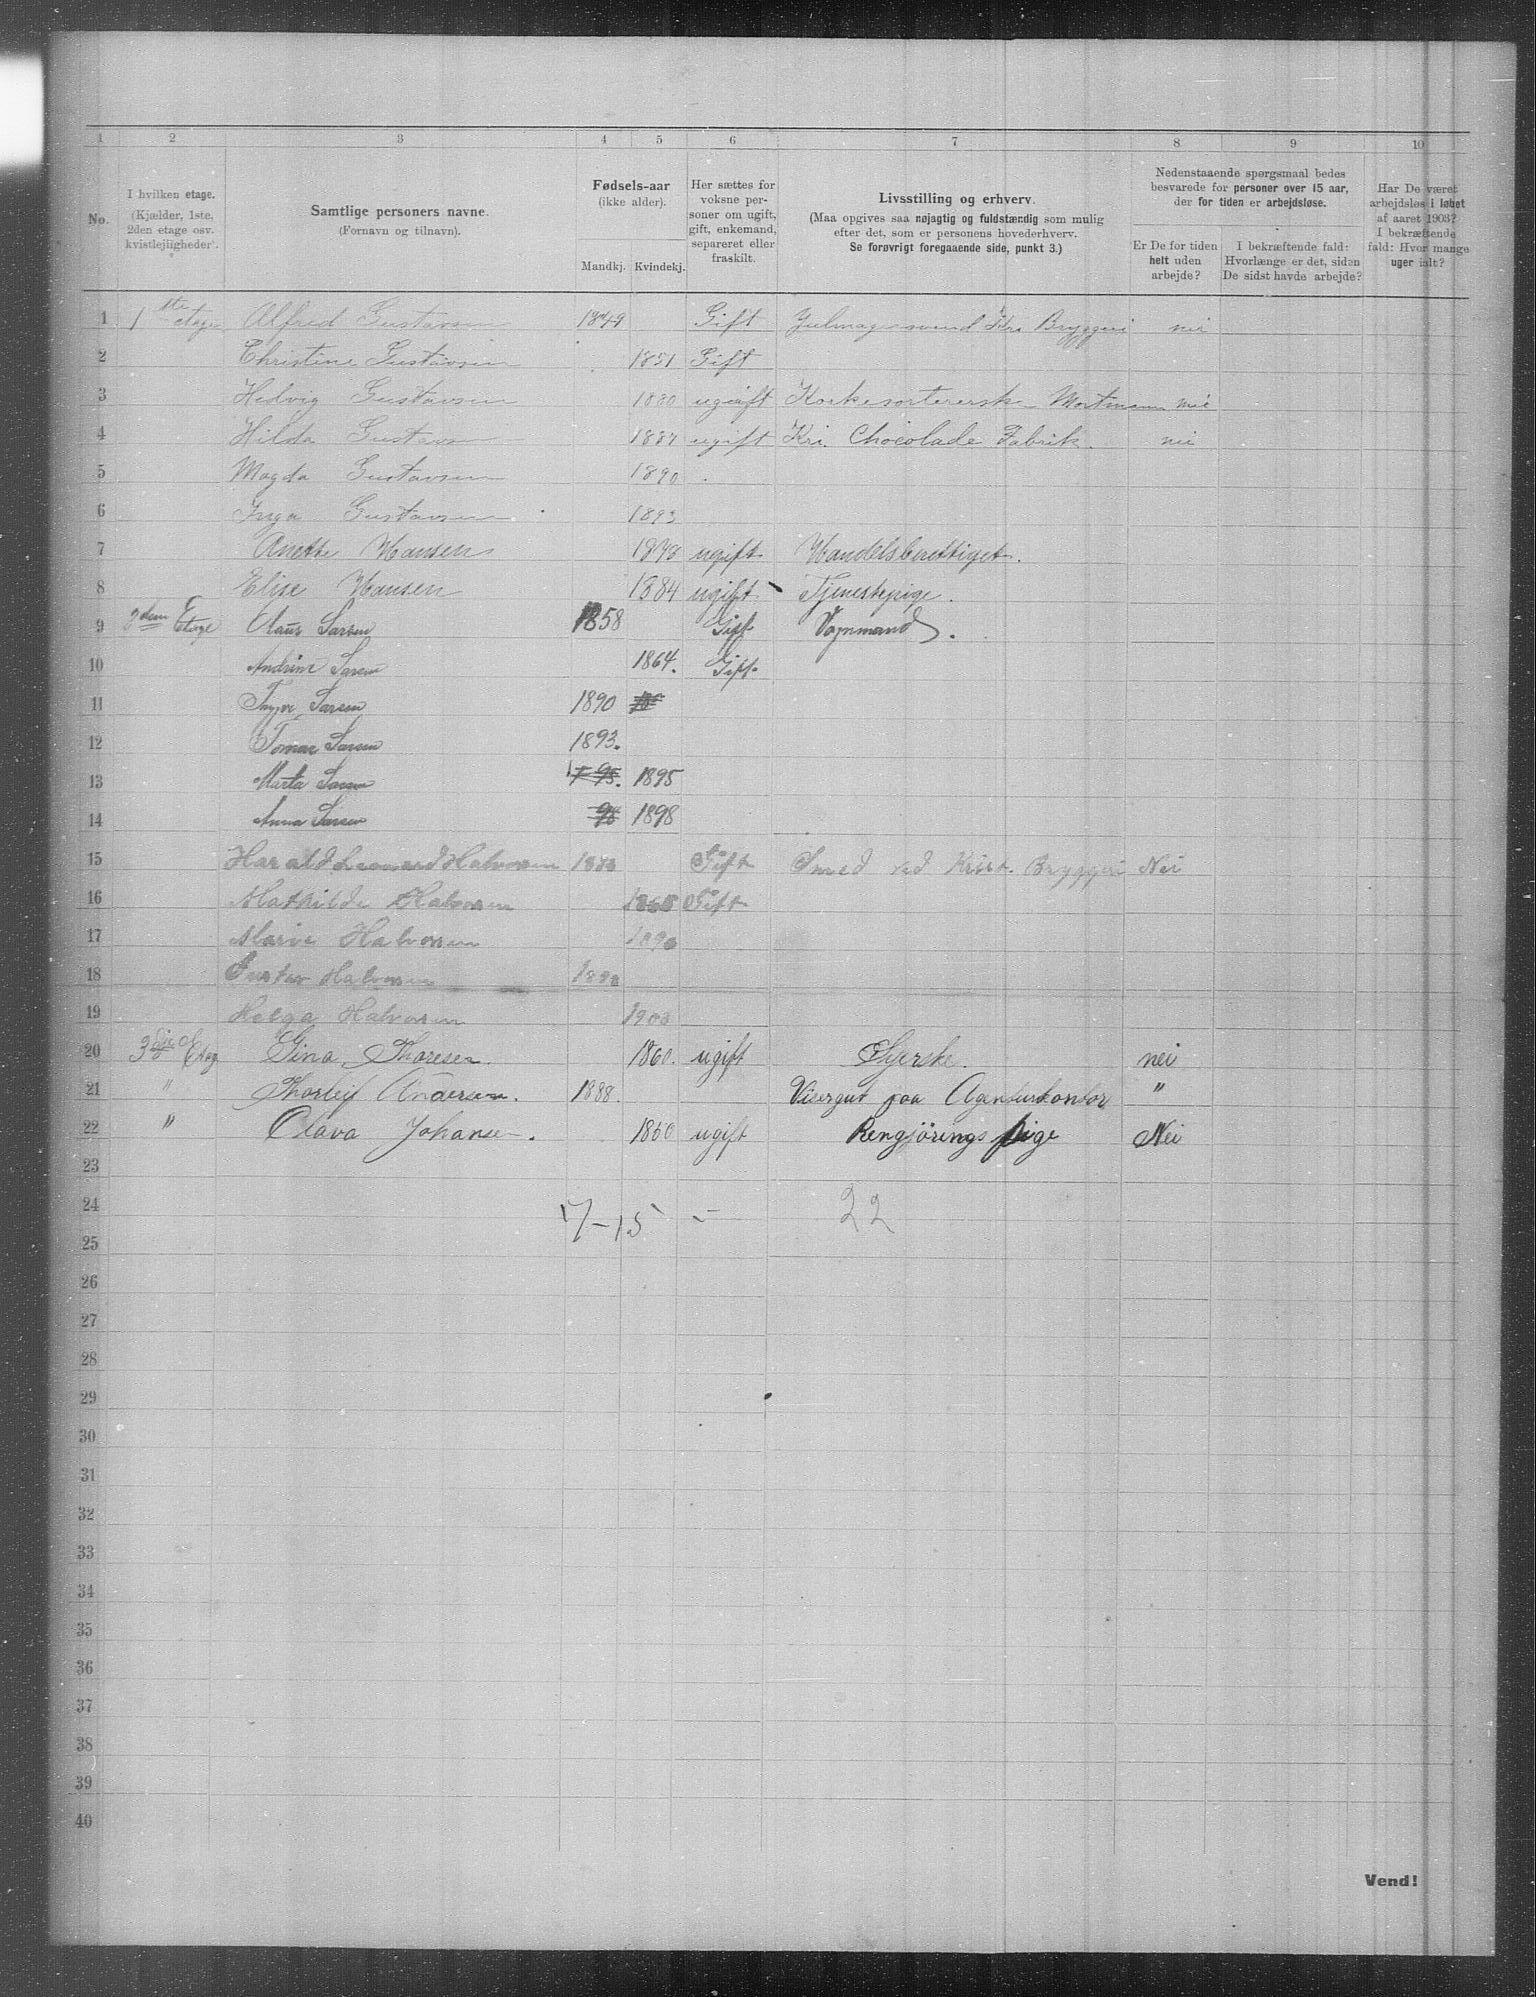 1 2 3 4 5 6 7 8 9 10
No.
I hvilken etage.
(Kjælder, 1ste,
2den etage osv.
kvistlejligheder).
Samtlige personers navne.
(Fornavn og tilnavn).
Fødsels-aar
(ikke alder).
Mandkj. Kvindekj.
Her sættes for
voksne per-
soner om ugift,
gift, enkemand,
separeret eller
fraskilt.
Livsstilling og erhverv.
(Maa opgives saa nøjagtig og fuldstændig som mulig
efter det, som er personens hovederhverv.
Se forøvrigt foregaaende side, punkt 3.)
Nedenstaaende spørgsmaal bedes
besvarede for personer over 15 aar,
der for tiden er arbejdsløse.
Er De for tiden
helt uden
arbejde?
I bekræftende fald:
Hvorlænge er det, siden
De sidst havde arbejde?
Har De været
arbejdsløs i løbet
af aaret 1903?
I bekræftende
fald: Hvor mange
uger ialt?
1 1ste etage Alfred Gustavsen 1849 Gift Kri Bryggeri nei
2 Christine Gustavsen 1851 Gift
3 Hedvig Gustavsen 1880 ugift Korkesortererske Mortmann nei
4 Hilda Gustavsen 1887 ugift Kri. Chocolade Fabrik. nei
5 Magda Gustavsen 1890
6 Inga Gustavsen 1893
7 Anette Hansen 1878 ugift Handelsberettiget.
8 Elise Hansen 1884 ugift Tjenestepige.
9 2den Etage Claus Larsen 1858 Gift Vognmand.
10 Andrine Larsen 1864. Gift.
11 Larsen 1890
12 Larsen 1893.
13 Marta Larsen 95. 1895
14 Anna Larsen 98 1898
15 Harald Leonard Halvorsen Gift Smed ved Krist. Bryggeri Nei
16 Mathilde Halvorsen 1865 Gift
17 Marie Halvorsen
18 Gustav Halvorsen
19 Helga Halvorsen 1900
20 3dje Etag Gina Thoresen. 1860. ugift Syerske. nei
21 " Thorleif Andersen. 1888. Visergut paa Agenturkontor "
22 " Olava Johansen. 1850 ugift Rengjörings pige Nei
23
24 7-15 - 22
25
26
27
28
29
30
31
32
33
34
35
36
37
38
39
40
Vend!